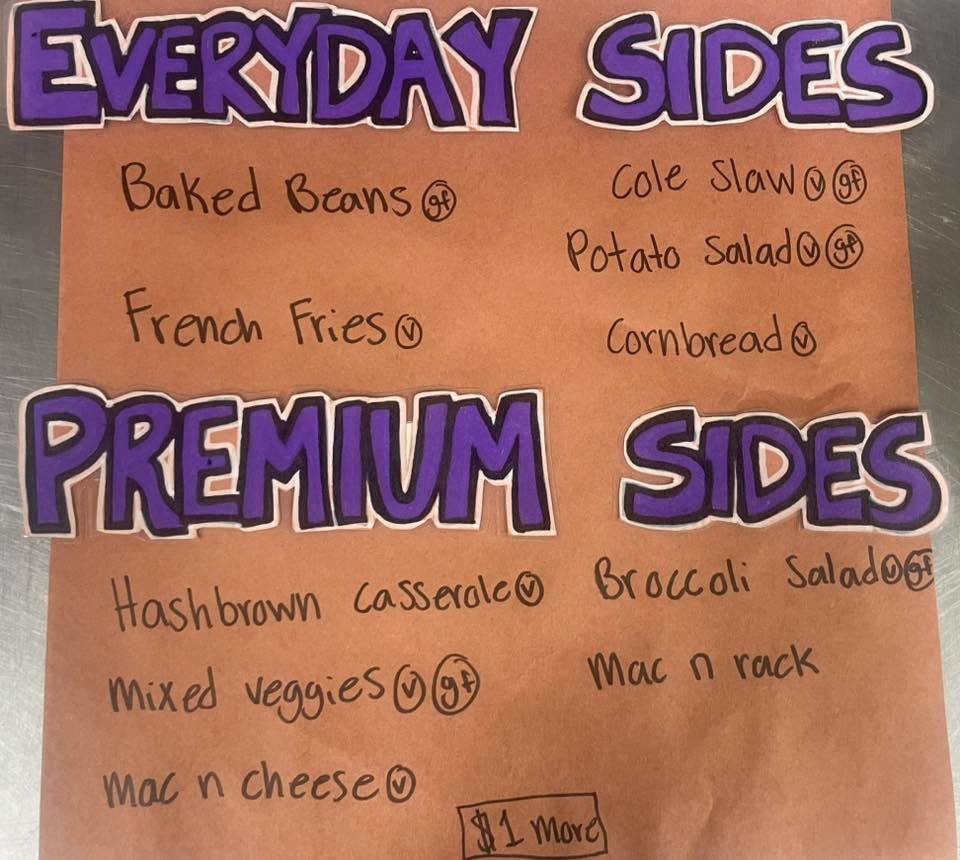 EVERYDAY SIDES
Baked Beans gf
French Fries v
Cole Slaw v gf
Potato Salad v gf
Cornbread v
PREMIUM SIDES
Hashbrown Casserole v
mixed veggies v gf
mac n cheese v
Broccoli Salad v gf
Mac n rack
$1 more